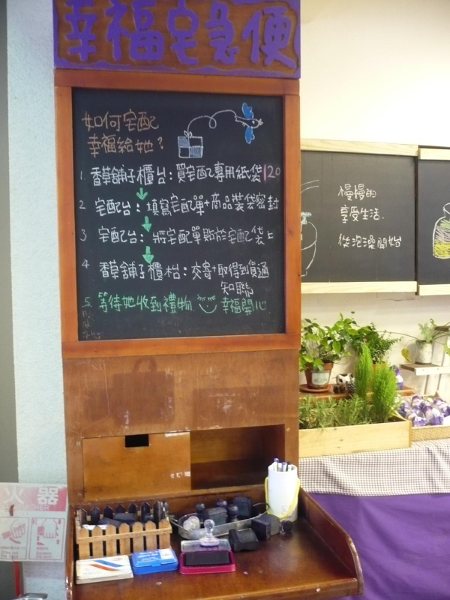 幸福宅急便
如何宅配
幸福給她？
1. 香草舖子櫃台：買宅配專用紙袋120
2. 宅配台：填寫宅配單+商品裝袋密封
3 宅配台：將宅配單貼於宅配袋上
4 香草舖子櫃枱：交寄+取得到貨通
知聯
5. 等待她收到禮物 幸福開心
慢慢的
享受生活.
從泡澡開始
火器